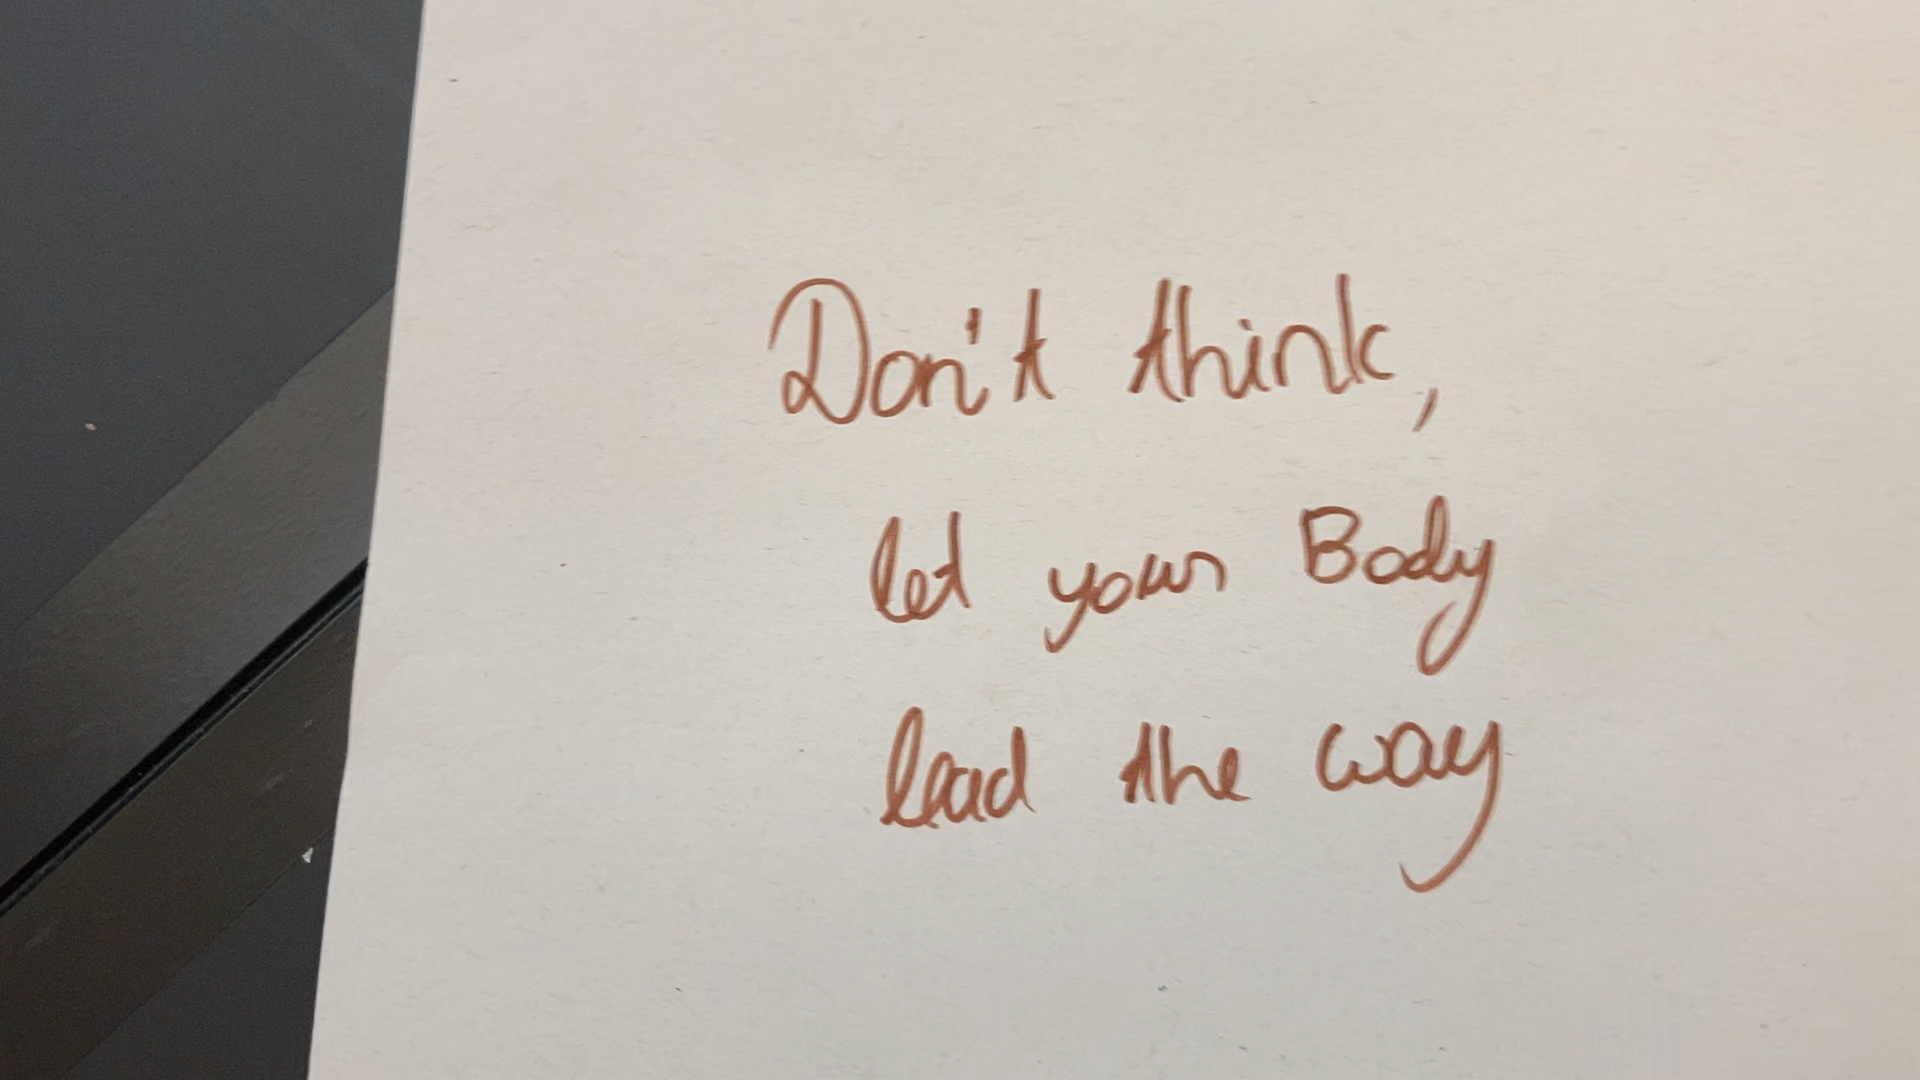 Don't think,
let your Body
lead the way